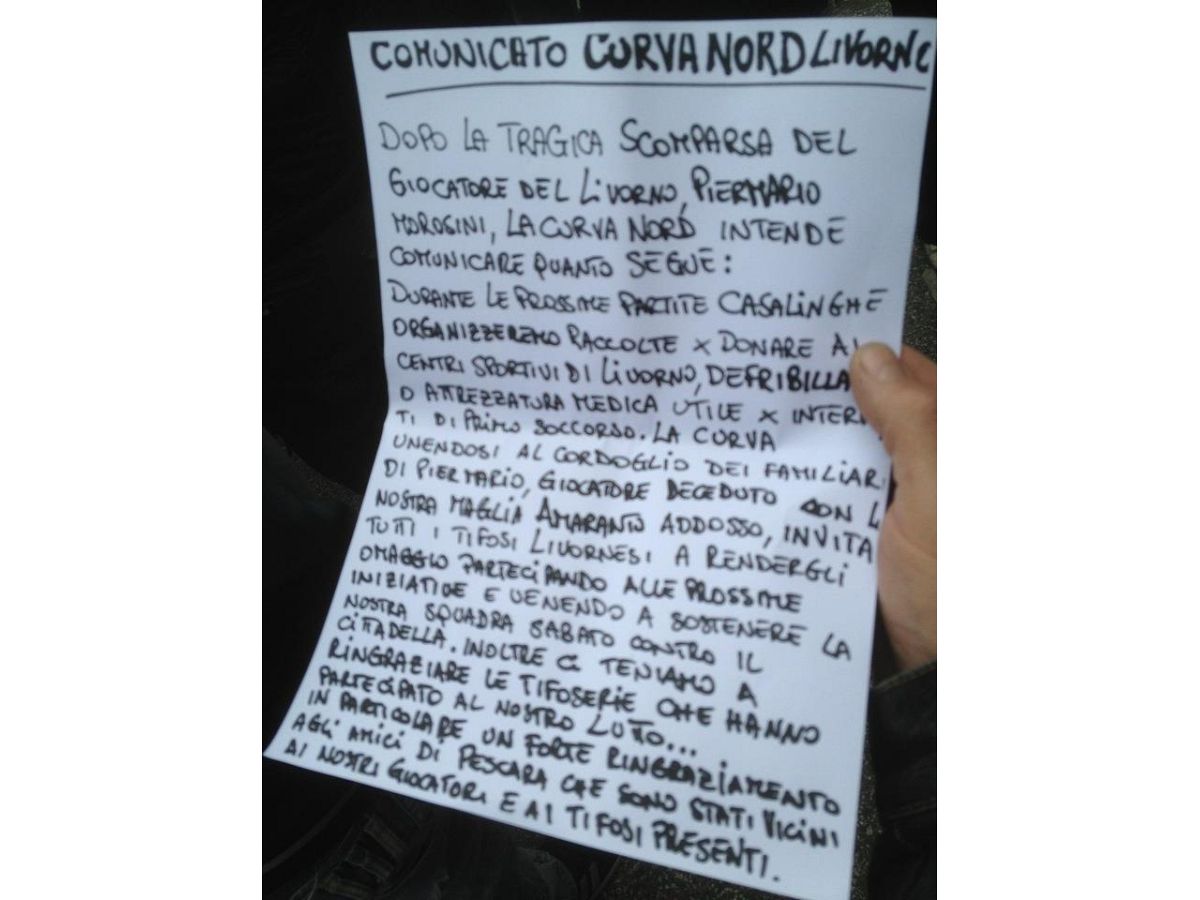 COMUNICATO CURVA NORD LIVORNO
DOPO LA TRAGICA SCOMPARSA DEL
GIOCATORE DEL LIVORNO, PIERMARIO
MOROSINI, LA CURVA NORD INTENDE
COMUNICARE QUANTO SEGUE:
DURANTE LE PROSSIME PARTITE CASALINGHE
ORGANIZZEREMO RACCOLTE X DONARE AI
CENTRI SPORTIVI DI LIVORNO, DEFRIBILLA
O ATTREZZATURA MEDICA UTILE X INTER
TI DI PRIMO SOCCORSO. LA CURVA
UNENDOSI AL CORDOGLIO DEI FAMILIARI
DI PIERMARIO, GIOCATORE DECEDUTO CON L
NOSTRA MAGLIA AMARANTO ADDOSSO, INVITA
TUTTI I TIFOSI LIVORNESI A RENDERGLI
OMAGGIO PARTECIPANDO ALLE PROSSIME
INIZIATIVE E VENENDO A SOSTENERE LA
NOSTRA SQUADRA SABATO CONTRO IL
CITTADELLA. INOLTRE CI TENIAMO A
RINGRAZIARE LE TIFOSERIE CHE HANNO
PARTECIPATO AL NOSTRO LUTTO...
IN PARTICOLARE UN FORTE RINGRAZIAMENTO
AGLI AMICI DI PESCARA CHE SONO STATI VICINI
AI NOSTRI GIOCATORI E AI TIFOSI PRESENTI.